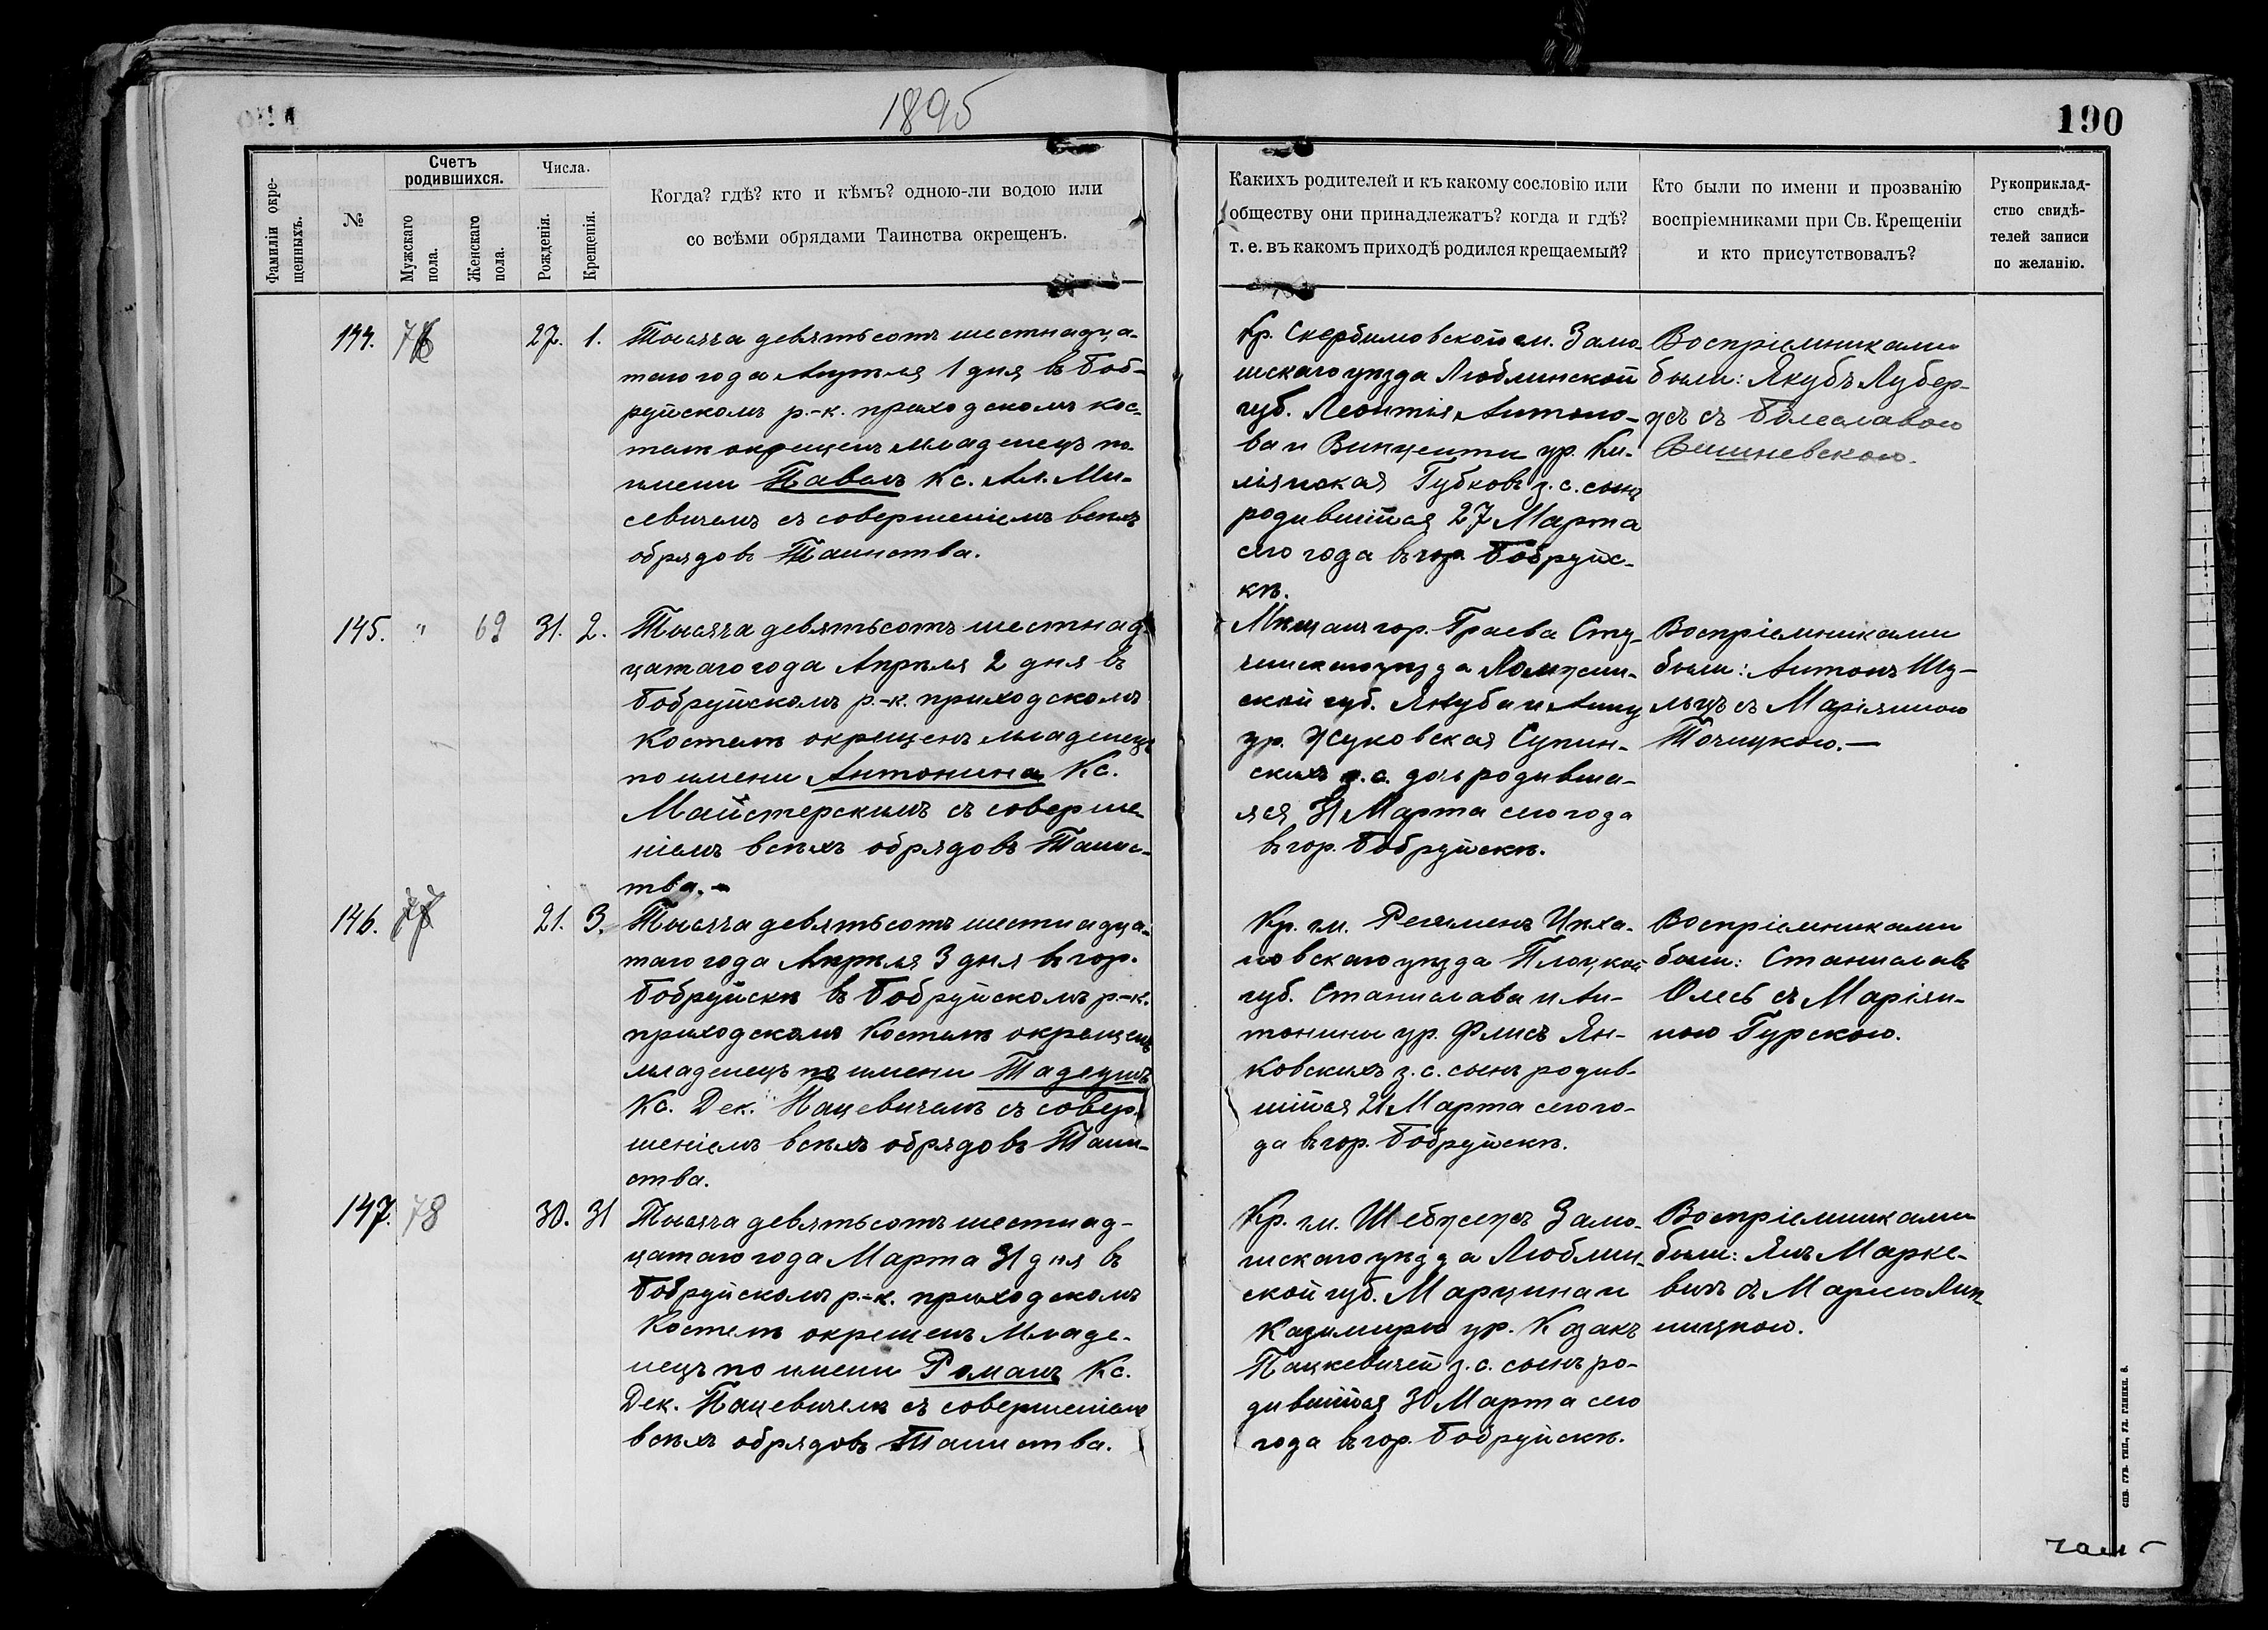 1895
190
Фамиліи окрещенныхъ.
№
Счетъ родившихся.
Мужскаго пола.
Женскаго пола.
Числа.
Рожденія.
Крещенія.
Когда? гдѣ? кто и кѣмъ? одною-ли водою или
со всѣми обрядами Таинства окрещенъ.
Какихъ родителей и къ какому сословію или
обществу они принадлежатъ? когда и гдѣ?
т. е. въ какомъ приходѣ родился крещаемый?
Кто были по имени и прозванію
воспріемниками при Св. Крещеніи
и кто присутствовалъ?
Рукоприклад-
ство свидѣ-
телей записи
по желанію.
144.
27. 1.
Тысяча девятьсотъ шестнадца-
таго года Апрѣля 1 дня въ Боб-
руйскомъ р.-к. приходскомъ кос-
телѣ окрещенъ младенецъ по
имени Павелъ Кс. Ал. Ми-
севичемъ съ совершеніемъ всѣхъ
обрядовъ Таинства.
Кр. Скербешовской гм. Замо-
шскаго уѣзда Люблинской
губ. Леонтія Антоно-
ва и Винценты ур.
Губковъ з. с. сынъ
родившійся 27 Марта
сего года въ гор. Бобруйс-
кѣ.
Воспріемниками
были: Якубъ Лубер-
съ Болеславою
Вишневскою.
145. " 69 31. 2.
Тысяча девятьсотъ шестнад-
цатаго года Апрѣля 2 дня въ
Бобруйскомъ р.-к. приходскомъ
Костелѣ окрещенъ младенецъ
по имени Антонина Кс.
Майстерскимъ съ соверше-
ніемъ всѣхъ обрядовъ Таинс-
тва.-
Мѣщанъ гор. Граева Щу-
чинскаго уѣзда Ломжин-
ской губ. Якуба и Анны
ур. Жуковская Супин-
скихъ з. с. дочь родивша-
яся 31 Марта сего года
въ гор. Бобруйскѣ.
Воспріемниками
были: Антонъ Шу-
льцъ съ Маріянною
Точицкою.—
146. 77 21. 3.
Тысяча девятьсотъ шестнадца-
таго года Апрѣля 3 дня въ гор.
Бобруйскѣ въ Бобруйскомъ р.-к.
приходскомъ Костелѣ окрещенъ
младенецъ по имени Тадеушъ
Кс. Дек. Пацевичемъ съ совер-
шеніемъ всѣхъ обрядовъ Таин-
ства.
Кр. гм. Регименъ Цѣха-
новскаго уѣзда Плоцкой
губ. Станислава и Ан-
тонины ур. Флисъ Ян-
ковскихъ з. с. сынъ родив-
шійся 21 Марта сего го-
да въ гор. Бобруйскѣ.
Воспріемниками
были: Станиславъ
Олесь съ Маріян-
ною Гурскою.
147. 78 30. 31
Тысяча девятьсотъ шестнад-
цатаго года Марта 31 дня въ
Бобруйскомъ р.-к. приходскомъ
Костелѣ окрещенъ Младе-
нецъ по имени Романъ Кс.
Дек. Пацевичемъ съ совершеніемъ
всѣхъ обрядовъ Таинства.
Кр. гм. Замо-
шскаго уѣзда Люблин-
ской губ. Марцина и
Казимиры ур. Козакъ
Пацкевичей з. с. сынъ ро-
дившійся 30 Марта сего
года въ гор. Бобруйскѣ.
Воспріемниками
были: Янъ Марке-
вичъ съ Маріею Лип-
ницкою.
СПБ. ГУБ. ТИП., УЛ. ГЛИНКИ, 8.